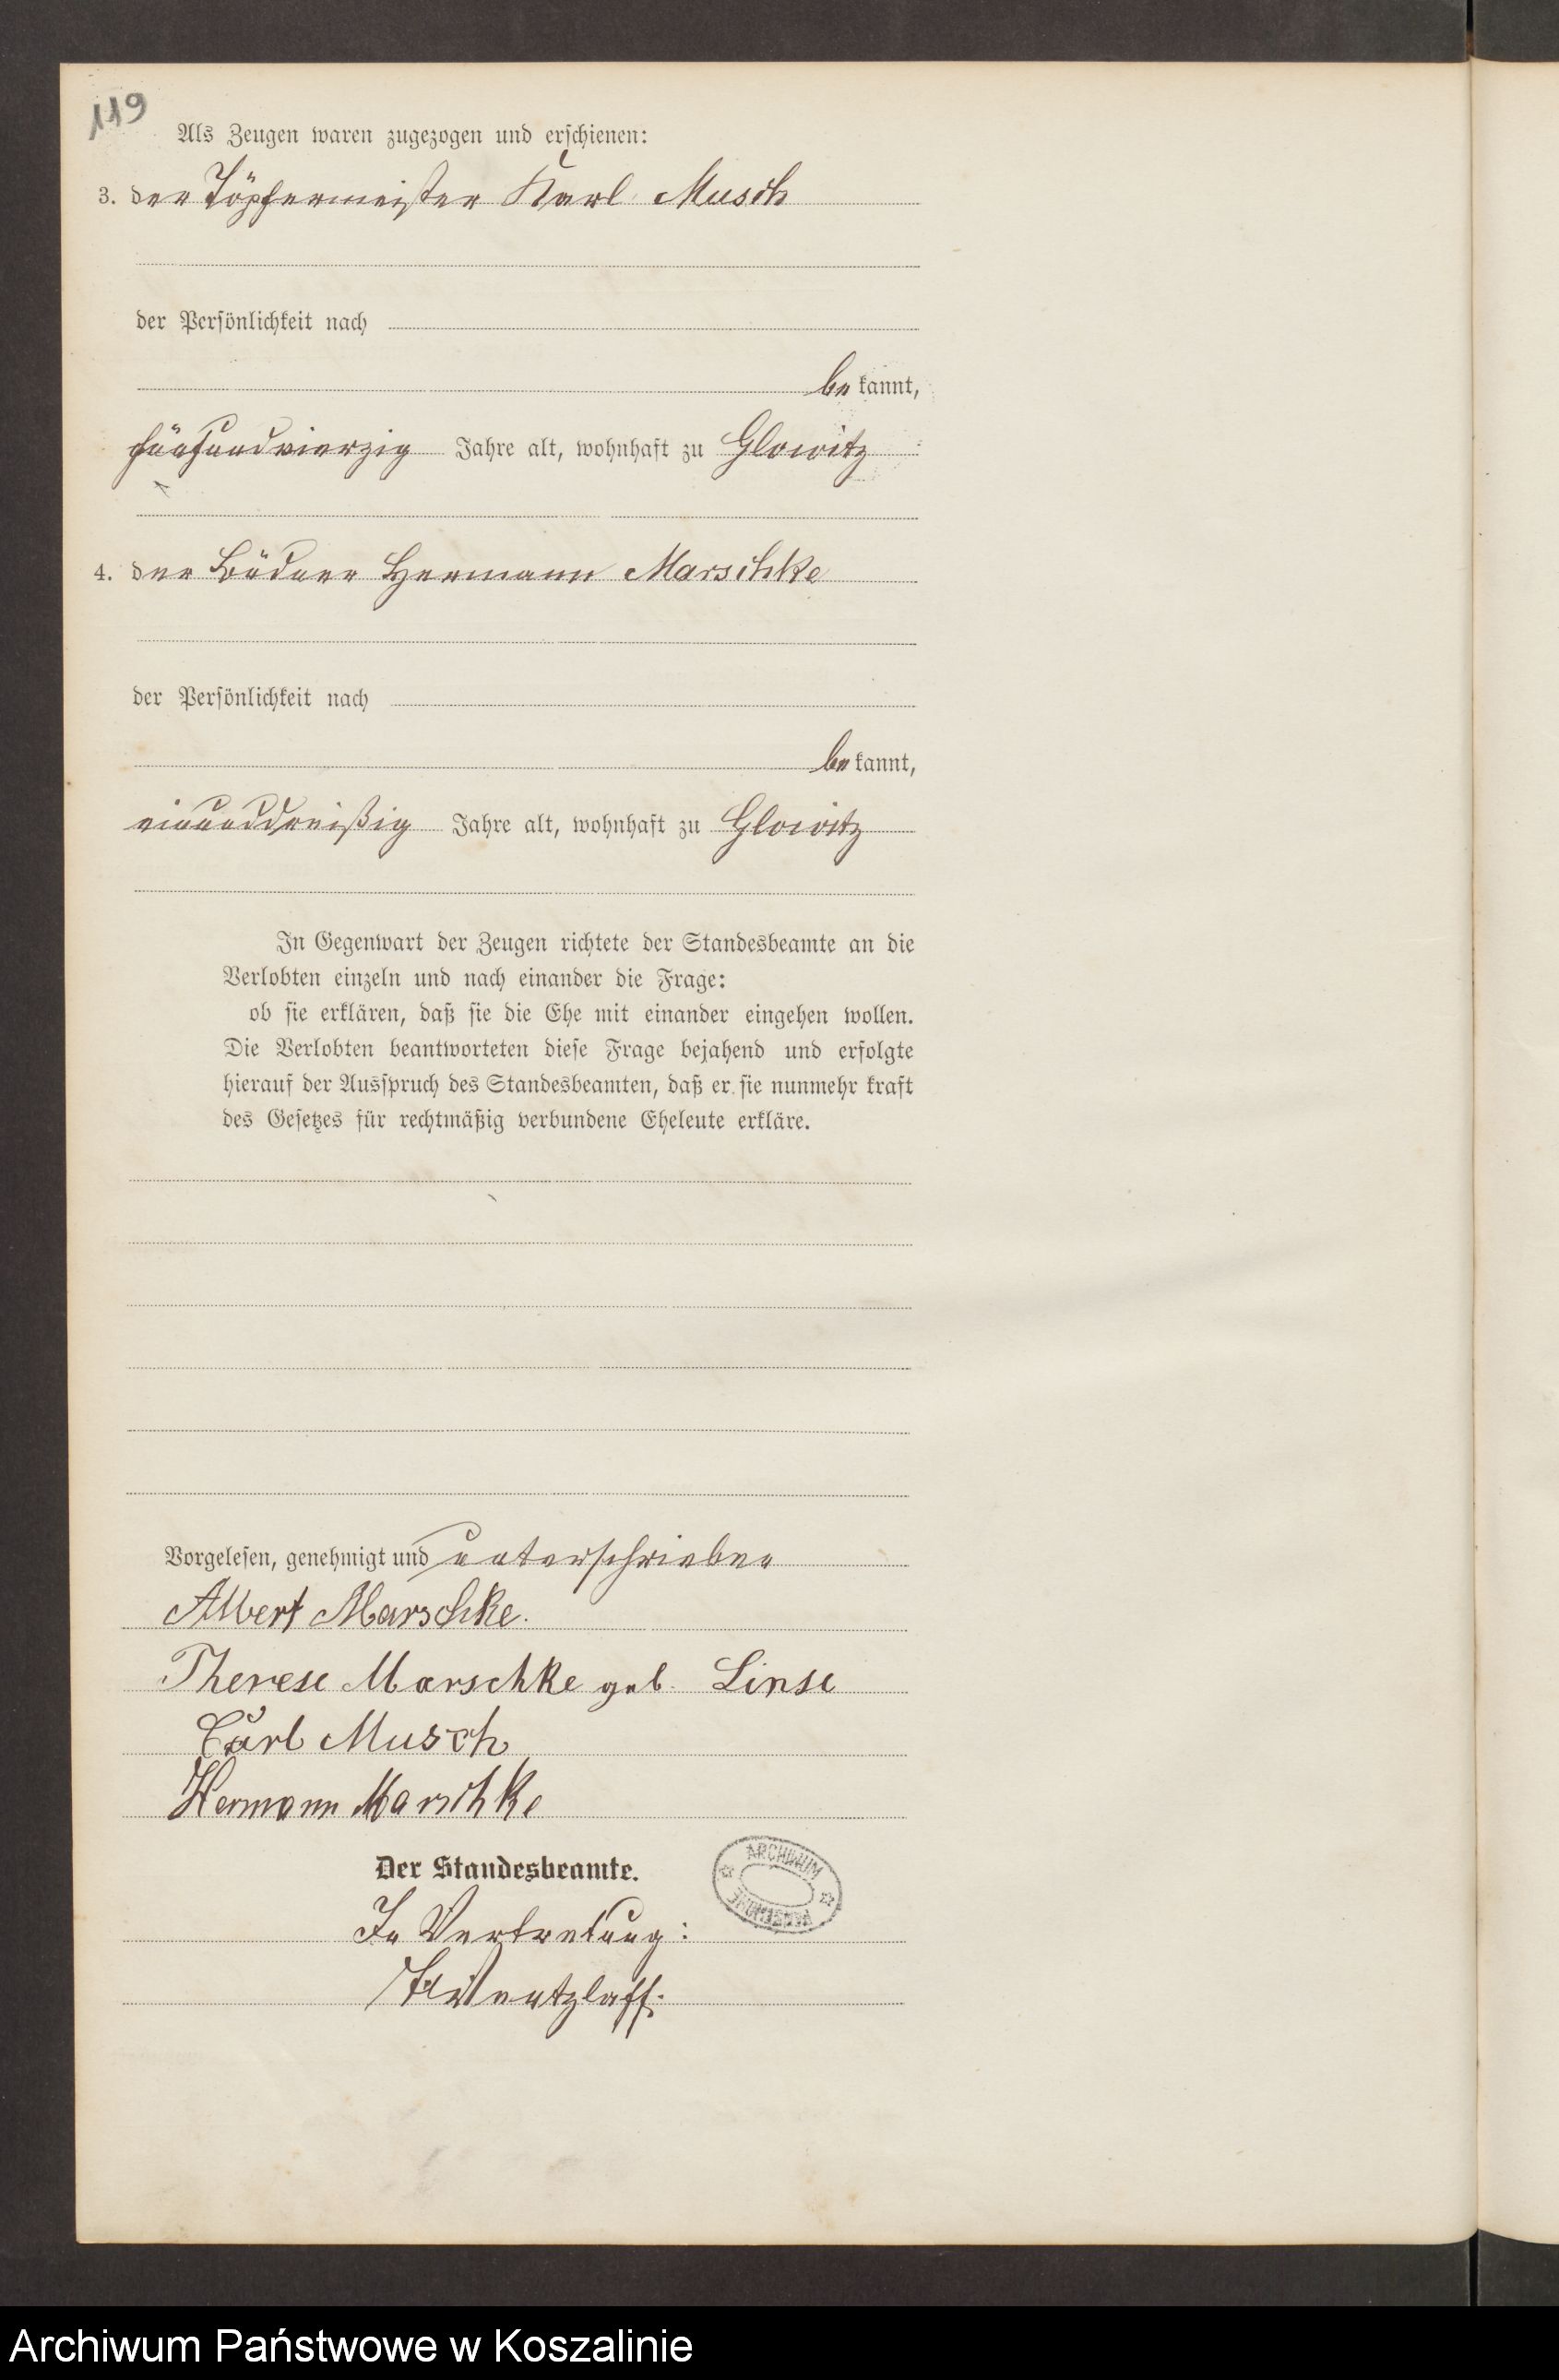 119
Als Zeugen waren zugezogen und erschienen:
3. der Töpfermeister Karl Musch
der Persönlichkeit nach
be kannt,
fünfundvierzig Jahre alt, wohnhaft zu Glowitz
4. der Büdner Hermann Marschke
der Persönlichkeit nach
be kannt,
einunddreißig Jahre alt, wohnhaft zu Glowitz
In Gegenwart der Zeugen richtete der Standesbeamte an die
Verlobten einzeln und nach einander die Frage:
ob sie erklären, daß sie die Ehe mit einander eingehen wollen.
Die Verlobten beantworteten diese Frage bejahend und erfolgte
hierauf der Ausspruch des Standesbeamten, daß er sie nunmehr kraft
des Gesetzes für rechtmäßig verbundene Eheleute erkläre.
Vorgelesen, genehmigt und unterschrieben
Albert Marschke.
Therese Marschke geb. Linse
Carl Musch
Hermann Marschke
Der Standesbeamte.
ARCHIWUM
In Vertretung:
Wentzlaff.
Archiwum Państwowe w Koszalinie